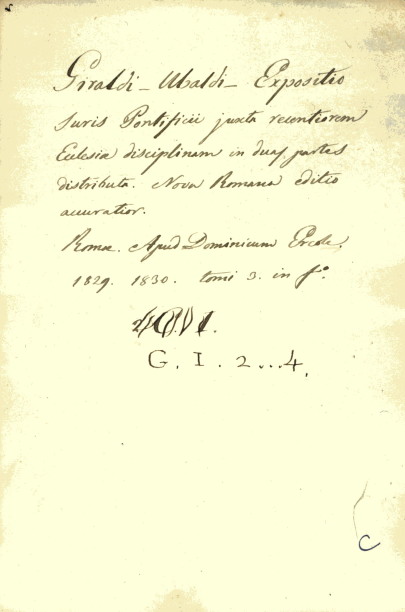 Giraldi - Ubaldi - Expositio
Juris Pontificii juxta recentiorem
Eclesiæ disciplinam in duas partes
distributa. Nova Romana editio
accuratior.
Romæ. Apud Dominicum Ercole,
1829. 1830. tomi 3. in fº
G. I. 2...4.
C